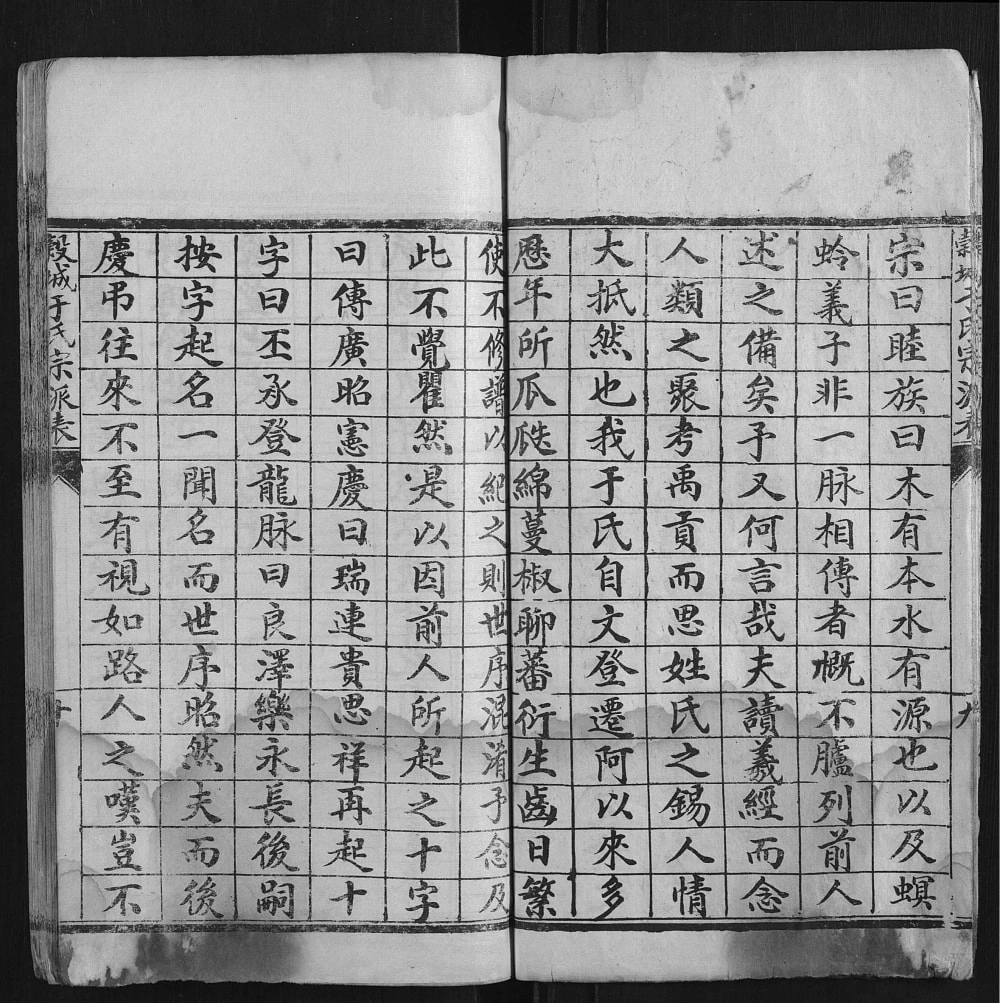 穀城于氏宗派表
九
宗曰睦族曰木有本水有源也以及螟
蛉義子非一脉相傳者概不臚列前人
述之備矣予又何言哉夫讀羲經而念
人類之聚考禹貢而思姓氏之錫人情
大抵然也我于氏自文登遷阿以來多
歷年所瓜瓞綿蔓椒聊蕃衍生齒日繁
使不修譜以紀之則世序混淆予念及
此不覺瞿然是以因前人所起之十字
曰傳廣昭憲慶曰瑞連貴思祥再起十
字曰丕承登龍脉曰良澤樂永長後嗣
按字起名一聞名而世序昭然夫而後
慶弔往來不至有視如路人之嘆豈不
穀城于氏宗派表
十